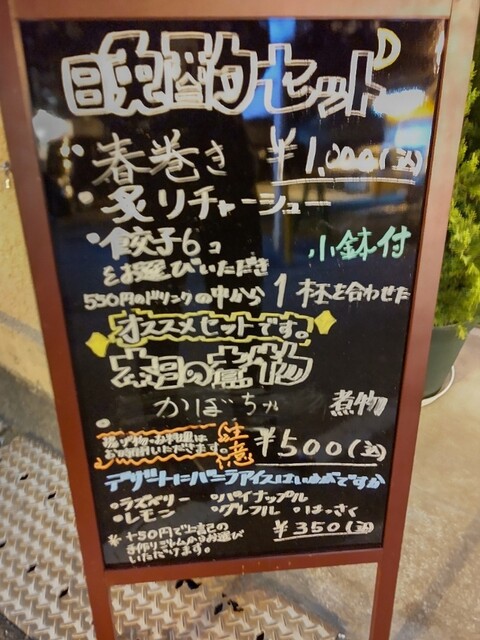 晩酌セット
・春巻き ¥1,000(込)
・炙りチャーシュー
・餃子6コ 小鉢付
をお選びいただき
550円のドリンクの中から1杯を合わせた
オススメセットです。
かぼちゃ 煮物
注意
お時間いただきます。
¥500(込)
デザートにバニラアイスはいかがですか
・ラズベリー ・パイナップル
・レモン ・グレフル ・はっさく
¥350(込)
※+50円で上記の
手作りジャムからお選び
いただけます。